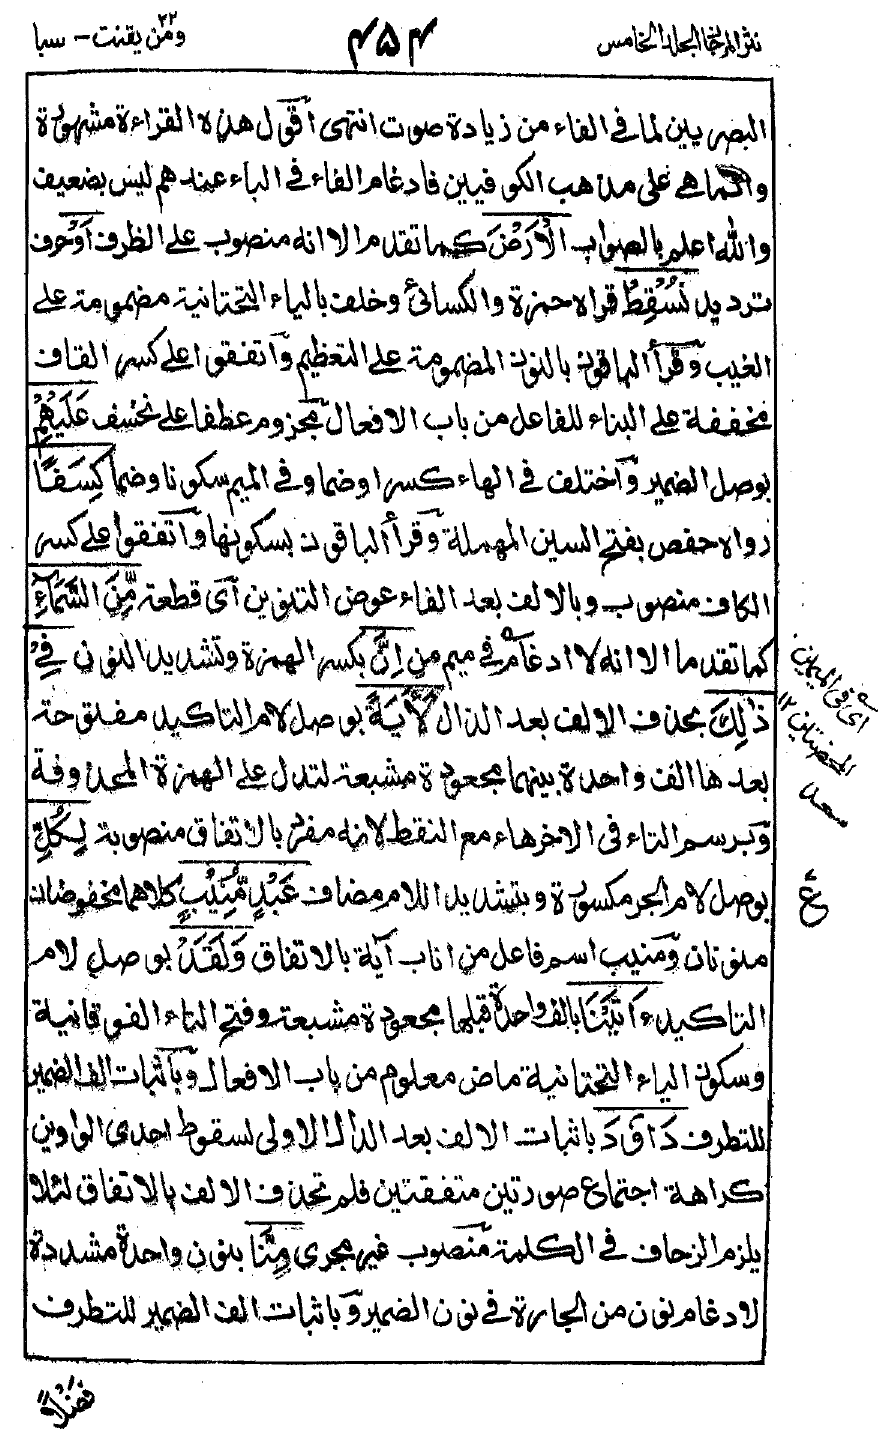 نثر المرجان المجلد الخامس
۴۵۴
ومن يقنت ۲۲ - سبا
البصريين لما فى الفاء من زيادة صوت انتهى اقول هذه القراءة مشهورة
وانما هى على مذهب الكوفيين فادغام الفاء فى الباء عندهم ليس بضعيف
والله اعلم بالصواب الْاَرْضَ كما تقدم الا انه منصوب على الظرف اَوْ حرف
ترديد نُسْقِطْ قراه حمزة والكسائى وخلف بالياء التحتانية مضمومة على
الغيب وقرأ الباقون بالنون المضمومة على التعظيم واتفقوا على كسر القاف
مخففة على البناء للفاعل من باب الافعال مجزوم عطفا على نخسف عَلَيْهِمْ
بوصل الضمير واختلف فى الهاء كسرا وضما وفى الميم سكونا وضما كِسَفًا
رواه حفص بفتح السين المهملة وقرأ الباقون بسكونها واتفقوا على كسر
الكاف منصوب وبالالف بعد الفاء عوض التنوين اى قطعة مِّنَ السَّمَآءِ
كما تقدما الا انه لا ادغام فى ميم من اِنَّ بكسر الهمزة وتشديد النون فِىْ
ذٰلِكَ بحذف الالف بعد الذال لَاٰيَةً بوصل لام التاكيد مفتوحة
بعدها الف واحدة بينهما مجعودة مشبعة لتدل على الهمزة المحذوفة
وبرسم التاء فى الاخر هاء مع النقط لانه مفرد بالاتفاق منصوبة لِّكُلِّ
بوصل لام الجر مكسورة وبتشديد اللام مضاف عَبْدٍ مُّنِيْبٍ كلاهما مخفوضان
منونان ومنيب اسم فاعل من اناب آية بالاتفاق وَلَقَدْ بوصل لام
التاكيد ءَاتَيْنَا بالف واحدة قبلها مجعودة مشبعة وفتح التاء الفوقانية
وسكون الياء التحتانية ماض معلوم من باب الافعال وباثبات الف الضمير
للتطرف دَاوٗدَ باثبات الالف بعد الدال الاولى لسقوط احدى الواوين
كراهة اجتماع صورتين متفقتين فلم تحذف الالف بالاتفاق لئلا
يلزم الزحاف فى الكلمة منصوب غير مجرى مِنَّا بنون واحدة مشددة
لادغام نون من الجارة فى نون الضمير وباثبات الف الضمير للتطرف
اى فى الميمين
المخفضتين ۱۲
ع
فَضْلًا